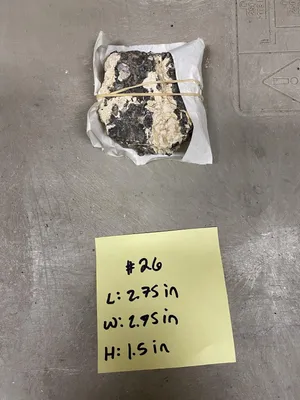 #26
L: 2.75 in
W: 2.95 in
H: 1.5 in